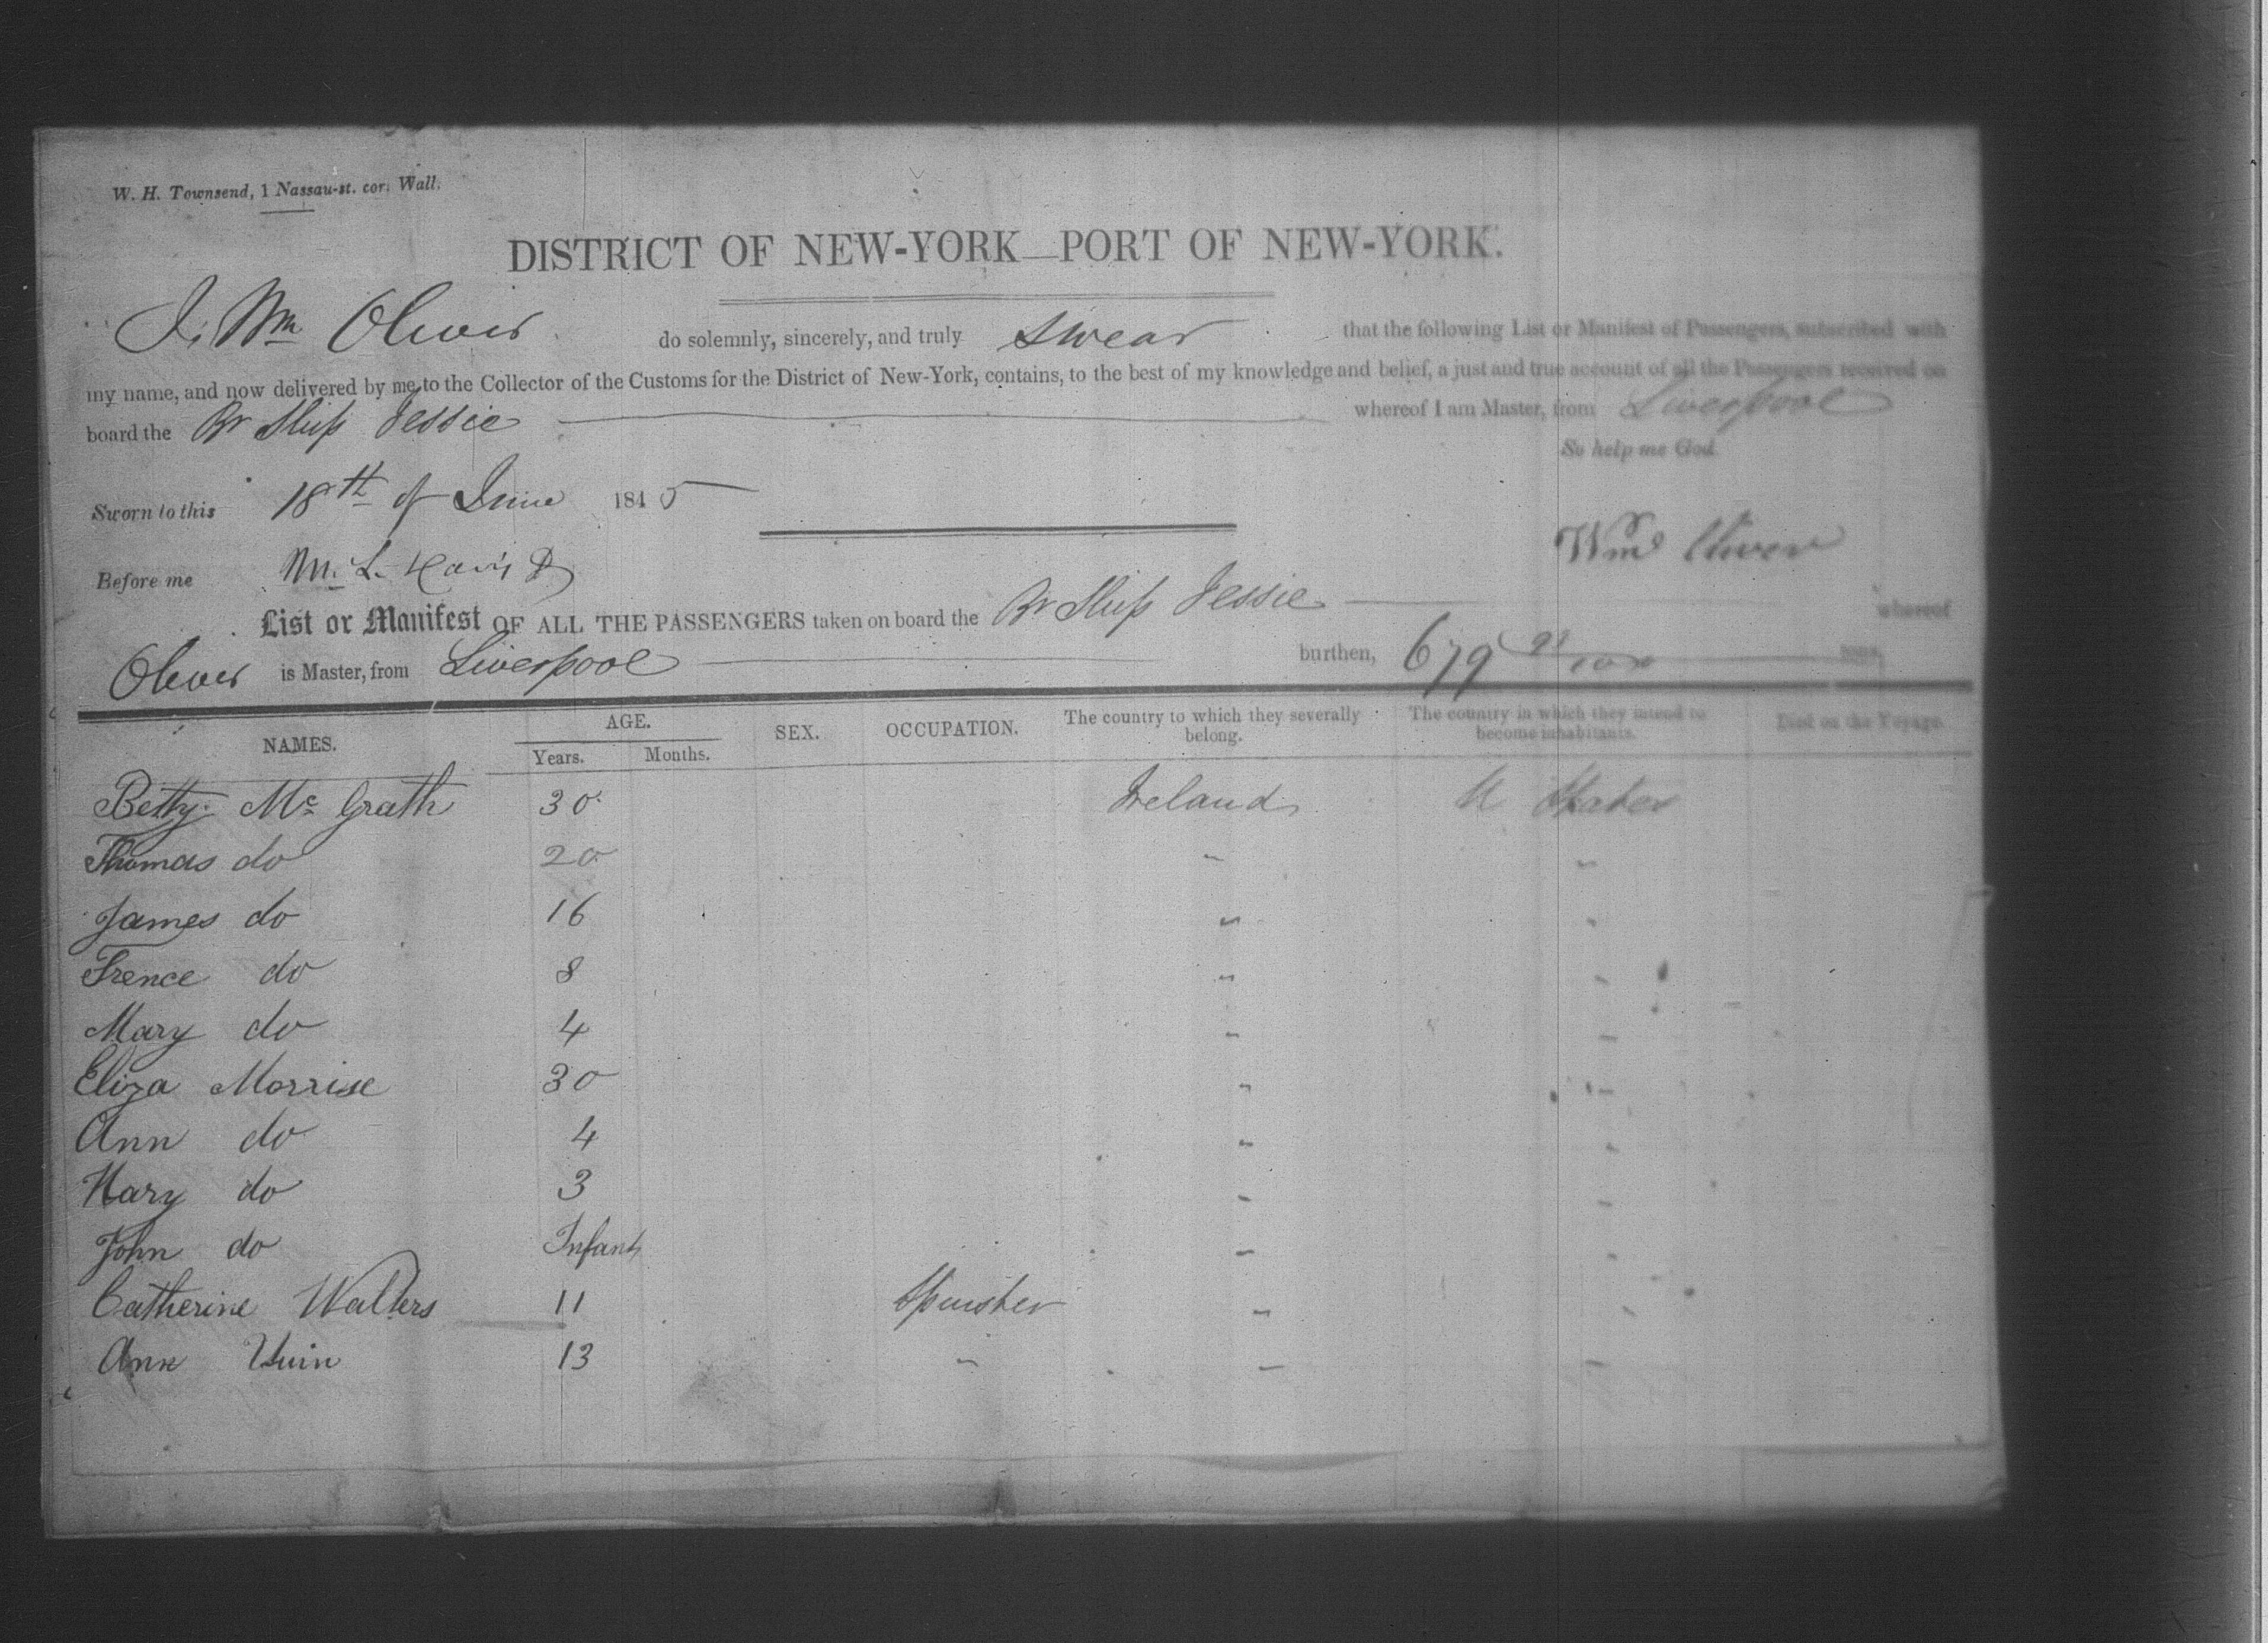 W. H. Townsend, 1 Nassau-st. cor. Wall.
DISTRICT OF NEW-YORK—PORT OF NEW-YORK.
I, Wm Oliver do solemnly, sincerely, and truly swear that the following List or Manifest of Passengers, subscribed with
my name, and now delivered by me to the Collector of the Customs for the District of New-York, contains, to the best of my knowledge and belief, a just and true account of all the Passengers received on
board the Br Ship Jessie whereof I am Master, from Liverpool
So help me God.
Sworn to this 18th of June 1845
Wm Oliver
Before me
List or Manifest OF ALL THE PASSENGERS taken on board the Br Ship Jessie whereof
Oliver is Master, from Liverpool burthen, 679 tons,
NAMES. AGE. SEX. OCCUPATION. The country to which they severally belong. The country in which they intend to become inhabitants. Died on the Voyage.
Years. Months.
Betty Mc Grath 30 Ireland U States
Thomas do 20 " "
James do 16 " "
Frence do 8 " "
Mary do 4 " "
Eliza Morrise 30 " "
Ann do 4 " "
Mary do 3 " "
John do Infant " "
Catherine Walters 11 Spinster " "
Ann 13 " " "